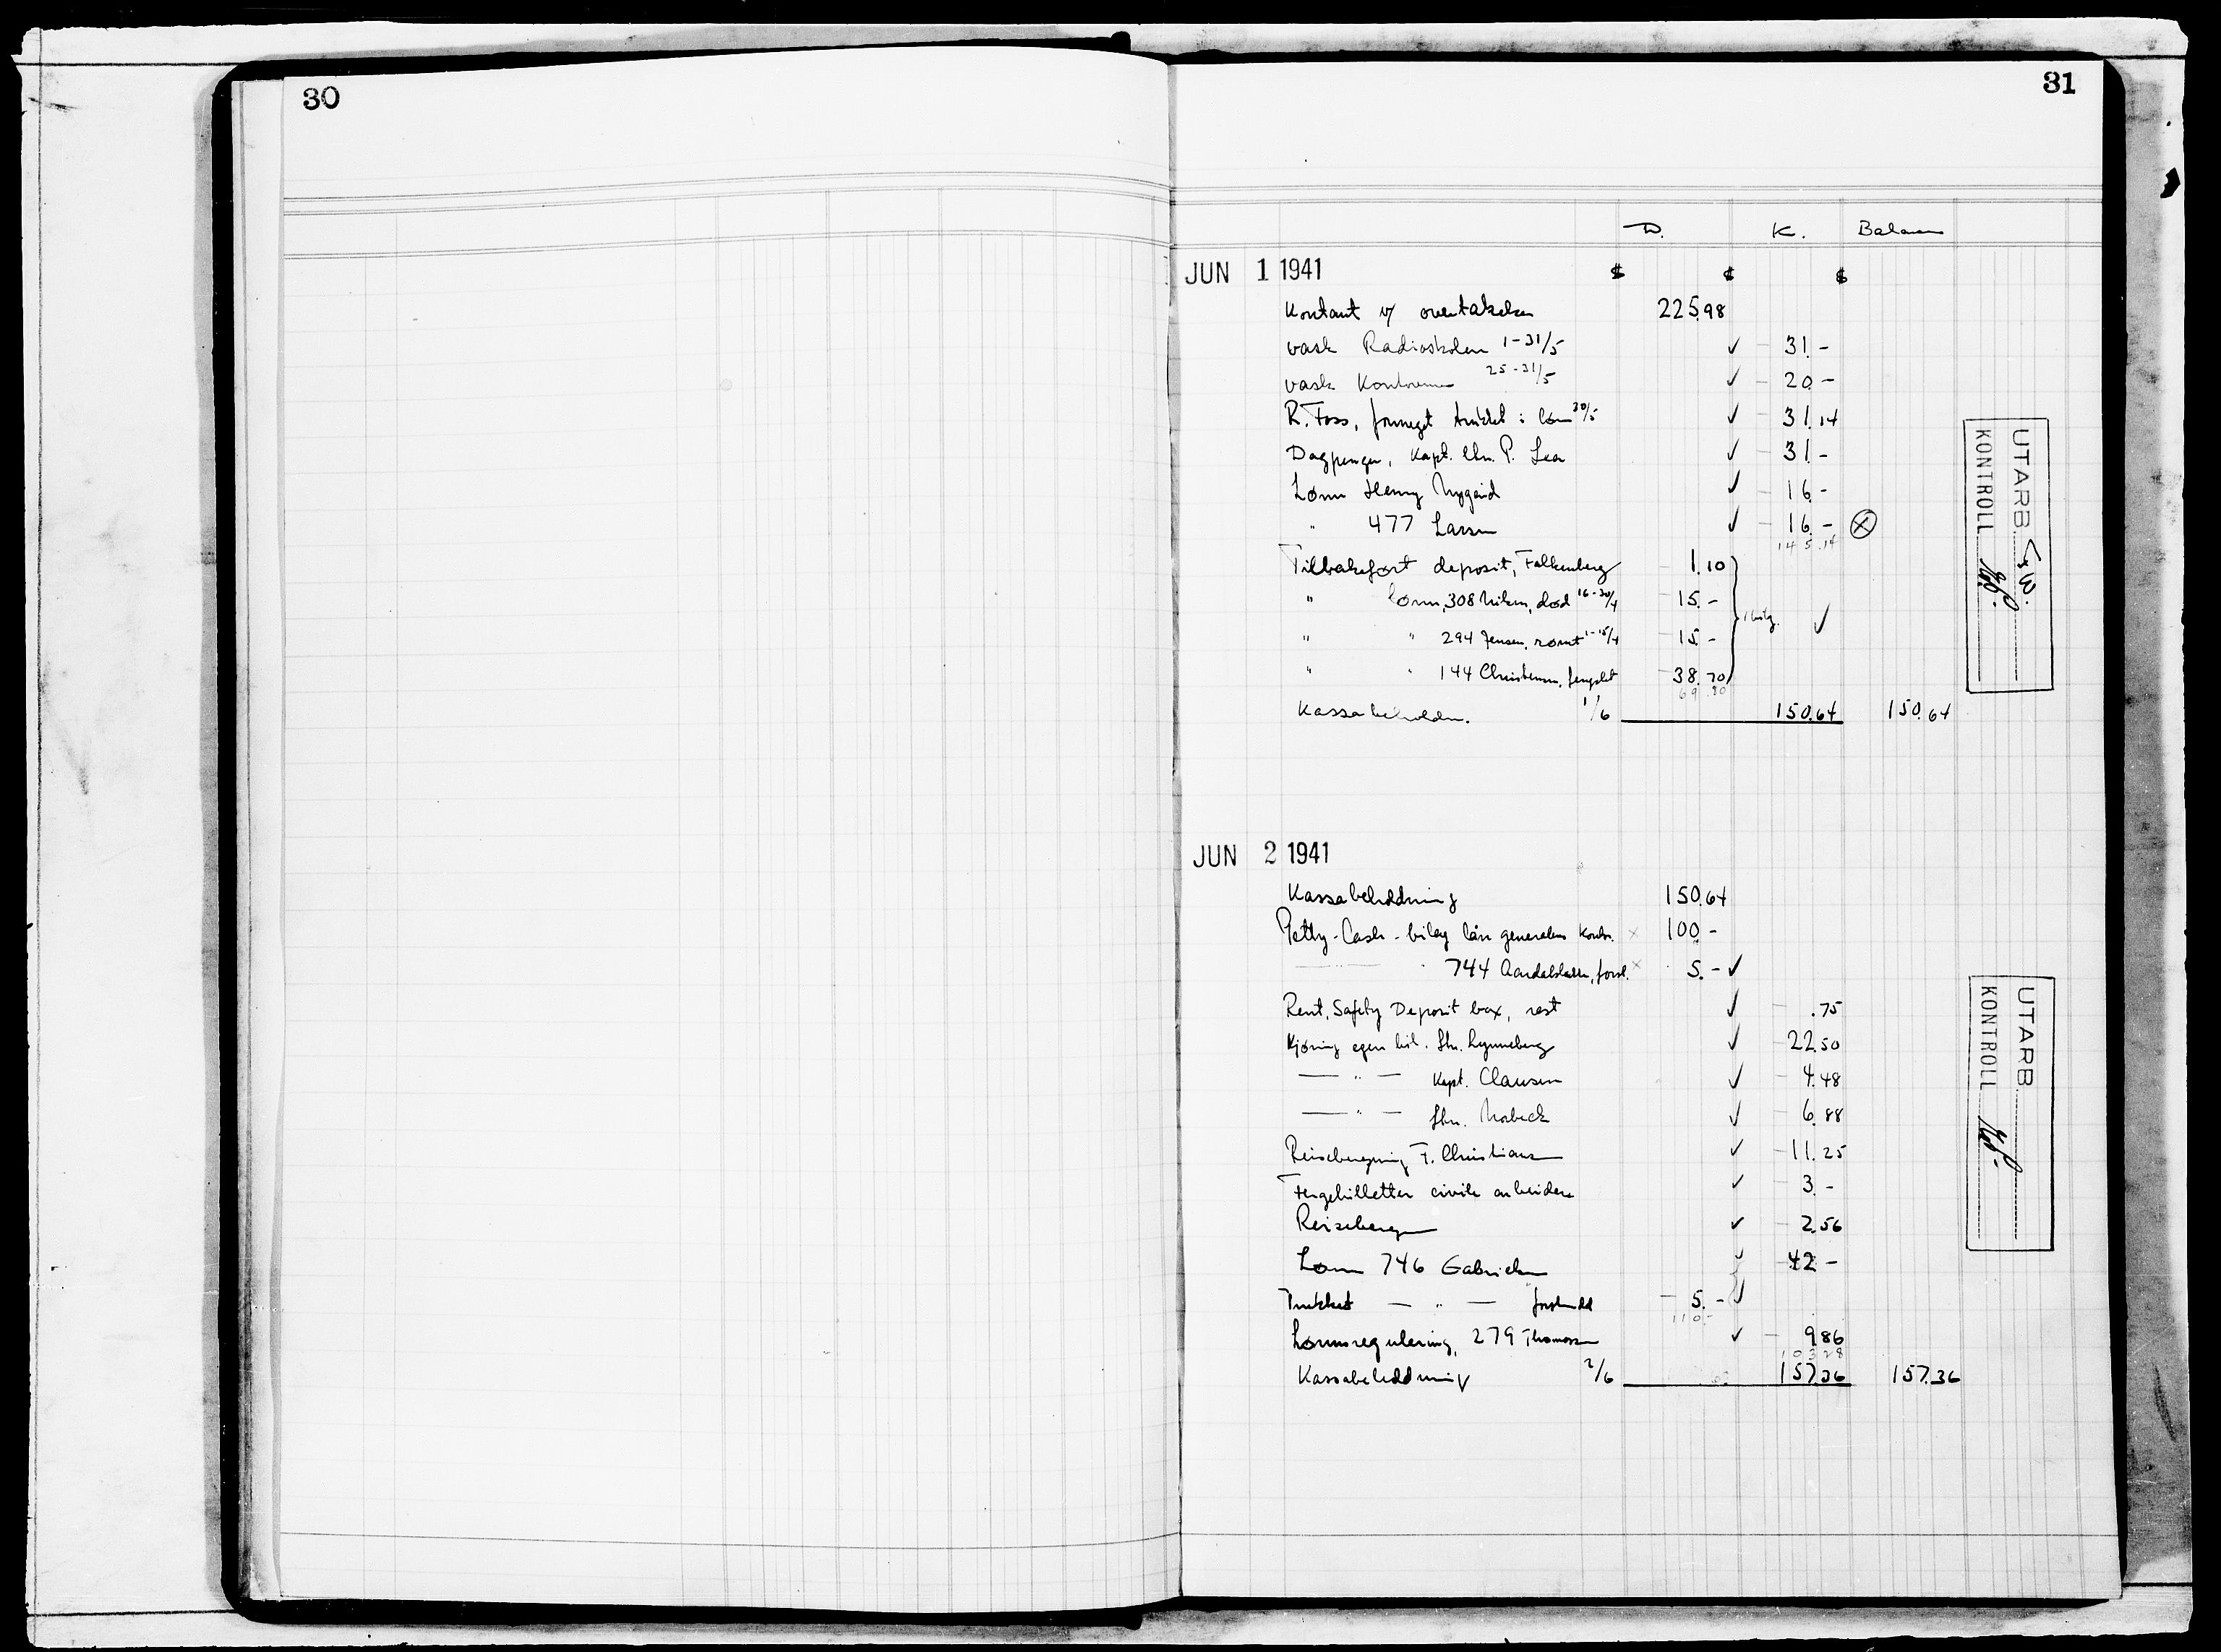 30
31
D. K. Balanse
JUN 1 1941 $ $ $
Kontant v/ overtakelsen 225.98
vask Radioskolen 1-31/5 ✓ 31.-
vask Kontorene 25-31/5 ✓ 20.-
R. Foss, formeget trukket i lønn 30/5 ✓ 31.14
Dagpenger, Kapt. Chr. P. Lea ✓ 31.-
Lønn Henry Nygård ✓ 16.-
" 477 Larsen ✓ 16.- ⊗
145.14
Tilbakeført deposit, Falkenberg 1.10
" lønn, 308 Nilsen, død 16-30/4 15.- 1 bilag. ✓
" " 294 Jensen, rømt 1-15/4 15.-
" " 144 Christensen, fengslet 38.70
69.80
Kassabeholdn. 1/6 150.64 150.64
UTARB. G.W.
KONTROLL
JUN 2 1941
Kassabeholdning 150.64
Petty-Cash-bilag lån generalens kontor. × 100.-
744 forsk. × 5.- ✓
Rent, Safety Deposit box, rest ✓ .75
Kjøring egen bil. Ltn. Lynneberg ✓ 22.50
— " — Kapt. Clausen ✓ 4.48
— " — Ltn. Norbeck ✓ 6.88
Reiseberegning F. Christiansen ✓ 11.25
Fergebilletter civile arbeidere ✓ 3.-
Reiseberegn ✓ 2.56
Lønn 746 Gabrielsen ✓ 42.-
Trukket — " — forskudd 5.- ✓
110.-
Lønnsregulering, 279 Thomassen ✓ 9.86
103.28
Kassabeholdning 2/6 157.36 157.36
UTARB.
KONTROLL